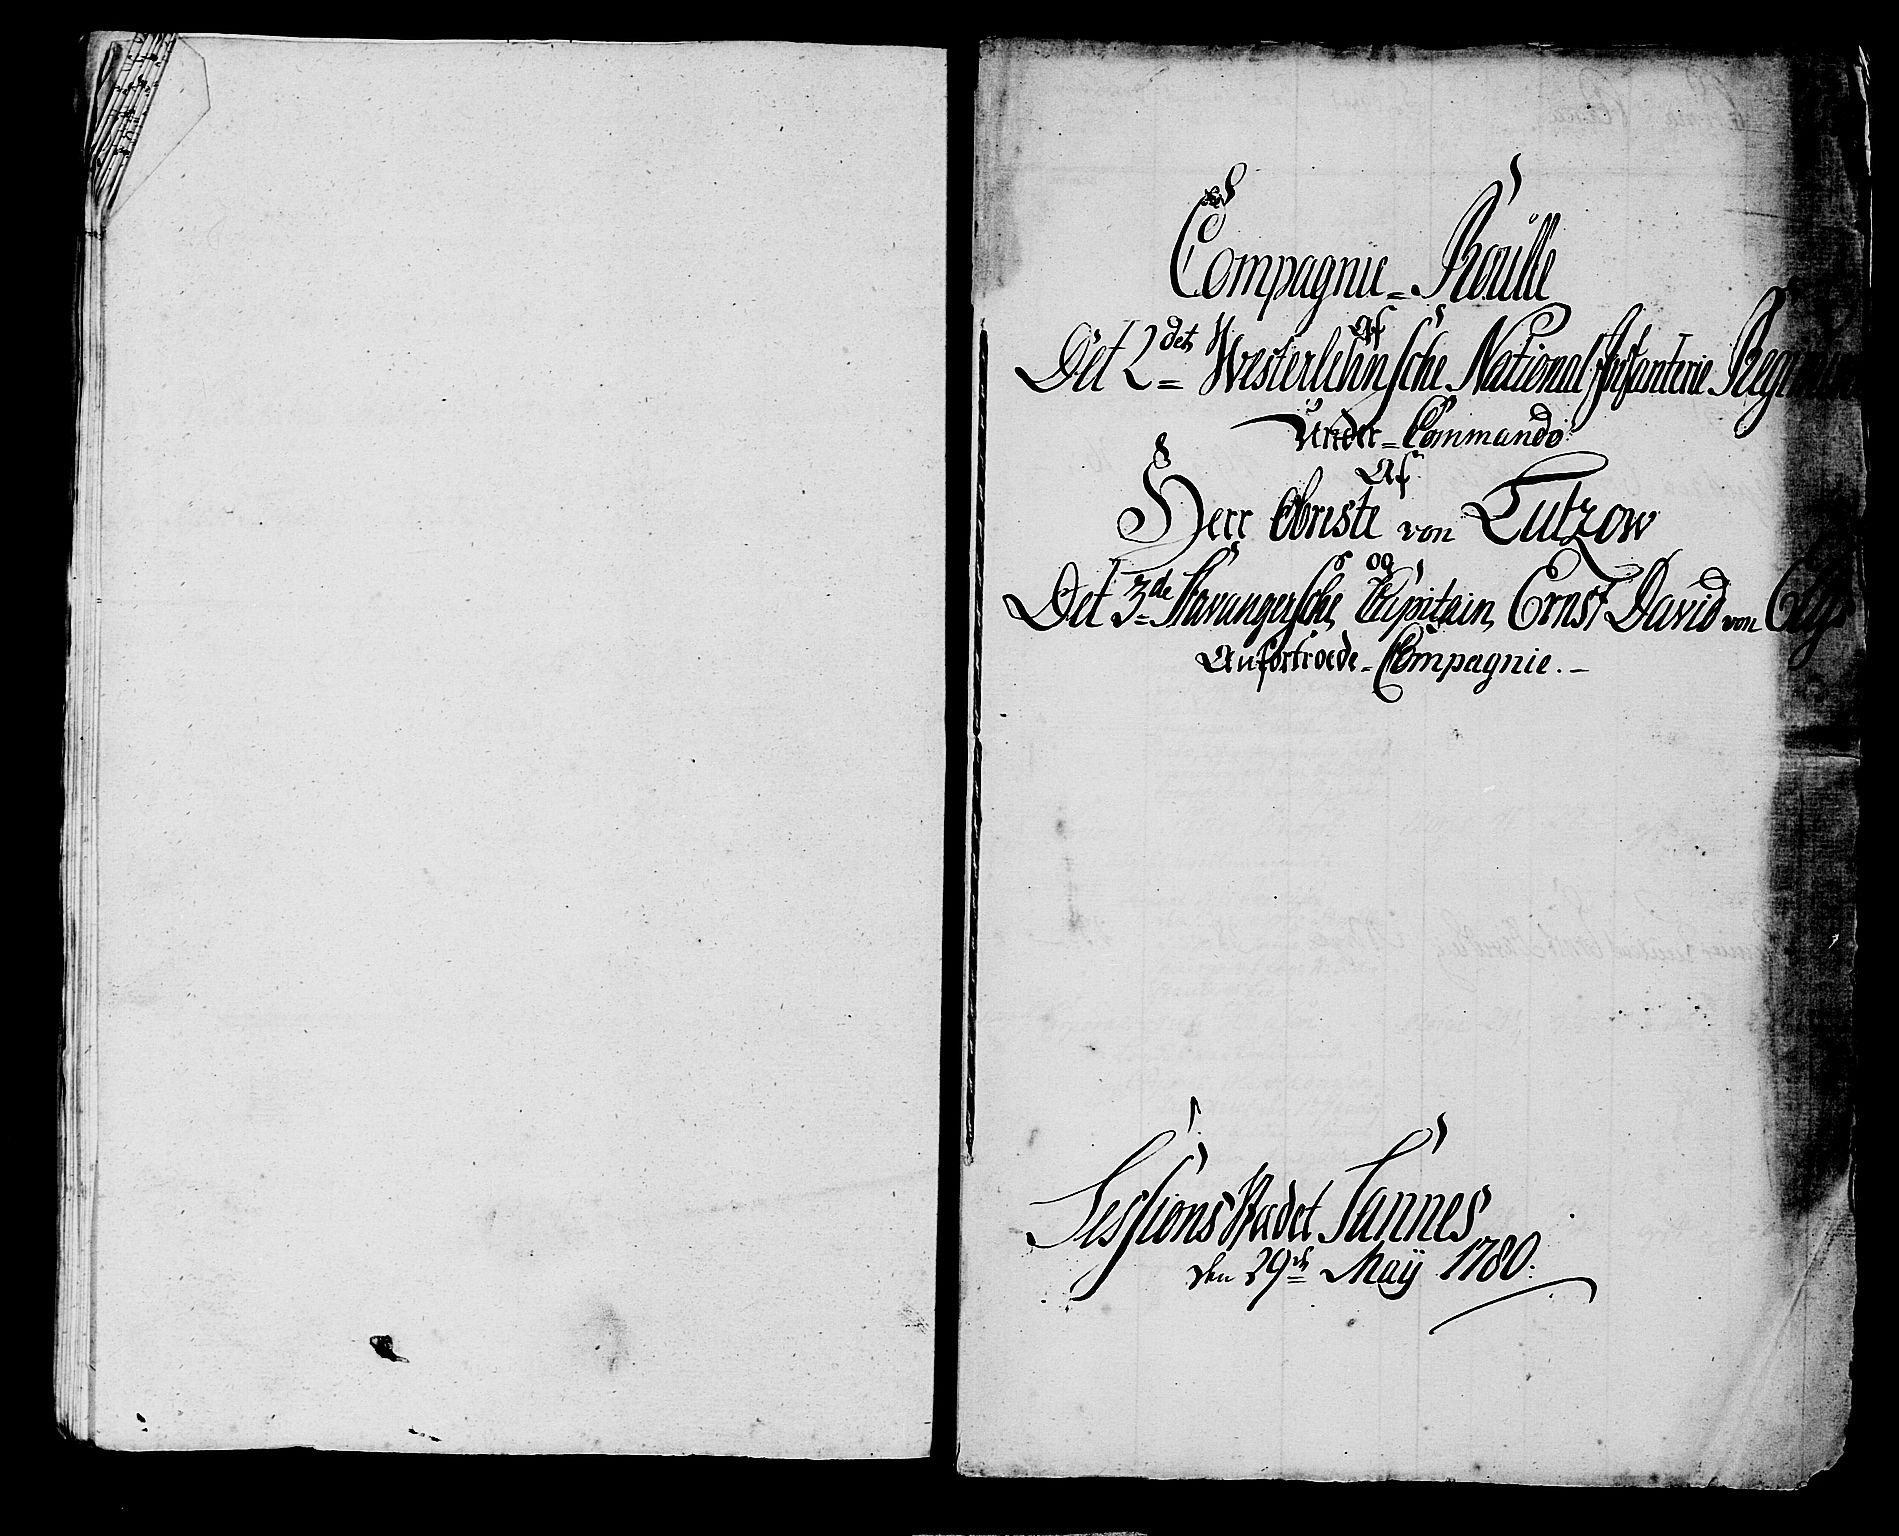 Compagnie = Roulle
Af
Det 2det Westerlehnsche National Infanterie
Under = Commando
Af
Herr Obriste von Lutzow
og
Det 3de Stavangersche, Capitain, Ernst David von
Anfortroede = Compagnie. –
Sessions Stadet Sannes
den 29de Maÿ 1780.